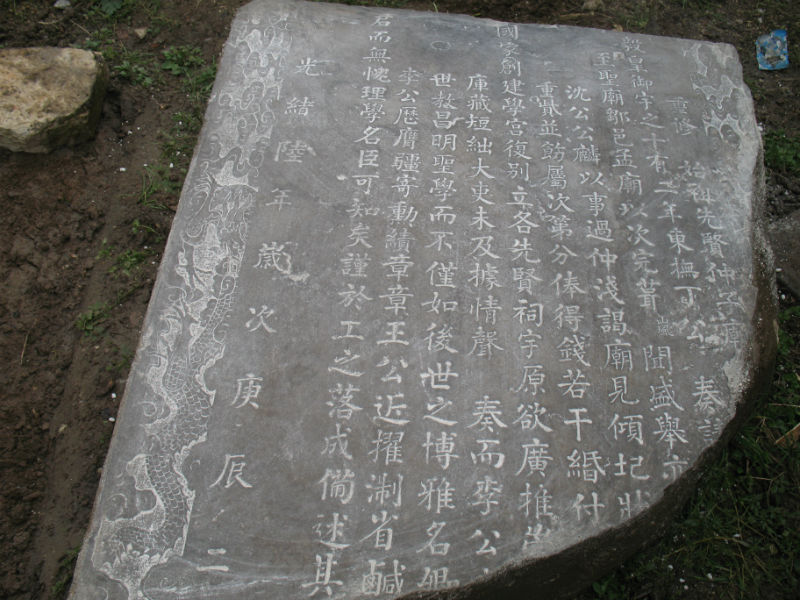 重修 始祖先賢仲子廟
教皇御宇之十有三年東撫丁公 奏請
至聖廟鄒邑孟廟以次完葺歲 聞盛舉亦
沈公公麟以事過仲淺謁廟見傾圮狀
重貲並飭屬次第分俸得錢若干緡付
國家創建學宮復別立各先賢祠宇原欲廣推
庫藏短絀大吏未及據情聲 奏而李公
世教昌明聖學而不僅如後世之博雅名
李公歷膺疆寄勳績章章王公近擢淛省鹹
君而無愧理學名臣可知矣謹於工之落成備述其
光緒陸年歲次庚辰二